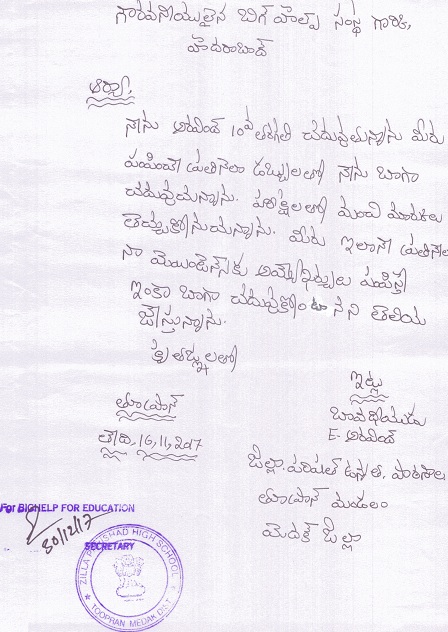 గౌరవనీయులైన బిగ్ హెల్ప్ సంస్థ గారికి,
హైదరాబాద్
ఆర్యా,
నాను అరవింద్ 10వ తరగతి చదువుతున్నాను మీరు
పంపించే ప్రతినెలా డబ్బులతో నాను బాగా
చదువుచున్నాను. పరీక్షలలో మంచి మార్కులు
తెచ్చుకోనుచున్నాను. మీరు ఇలానే ప్రతినెల
నా మెయింటెన్స్‌కు అమ్మో పంపిస్తే
ఇంకా బాగా చదువుకోంటానని తెలియ
జేస్తున్నాను.
కృతజ్ఞ్నలతో
ఇట్లు
తూప్రాన్
తేది, 16, 11, 2017
E. అరవింద్
జిల్లా. పరిషత్ ఉన్నత. పాఠశాల
తూప్రాన్ మండలం
మెదక్ జిల్లా
For BIGHELP FOR EDUCATION
30/12/17
SECRETARY
ZILLA PARISHAD HIGH SCHOOL
TOOPRAN MEDAK DIST